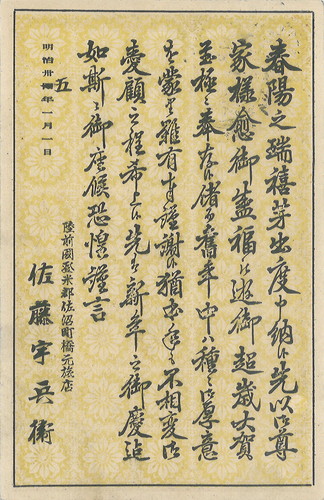 春陽之瑞禧芽出度申納候先以御尊
家様愈御盖福ニ遊御超歳大賀
至極ニ奉存候偖舊年中ハ種々御厚意
を蒙り難有奉謹謝候猶本年も不相変御
愛顧之程希上候先ハ新年之御慶迠
如斯ニ御座候恐惶謹言
明治卅四年一月一日
五
陸前國登米郡佐沼町橋元旅店
佐藤宇兵衛